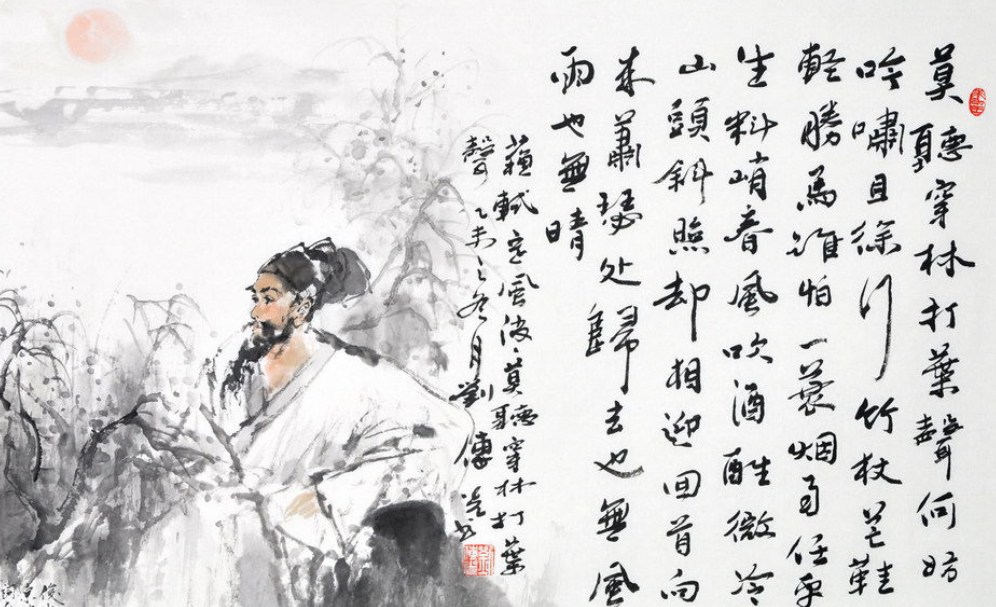 莫聽穿林打葉聲何妨
吟嘯且徐行竹杖芒鞋
輕勝馬誰怕一蓑烟雨任平
生料峭春風吹酒醒微冷
山頭斜照却相迎回首向
来蕭瑟处歸去也無風
雨也無晴
蘇軾定風波莫聽穿林打葉
聲乙未之冬月劉傳书